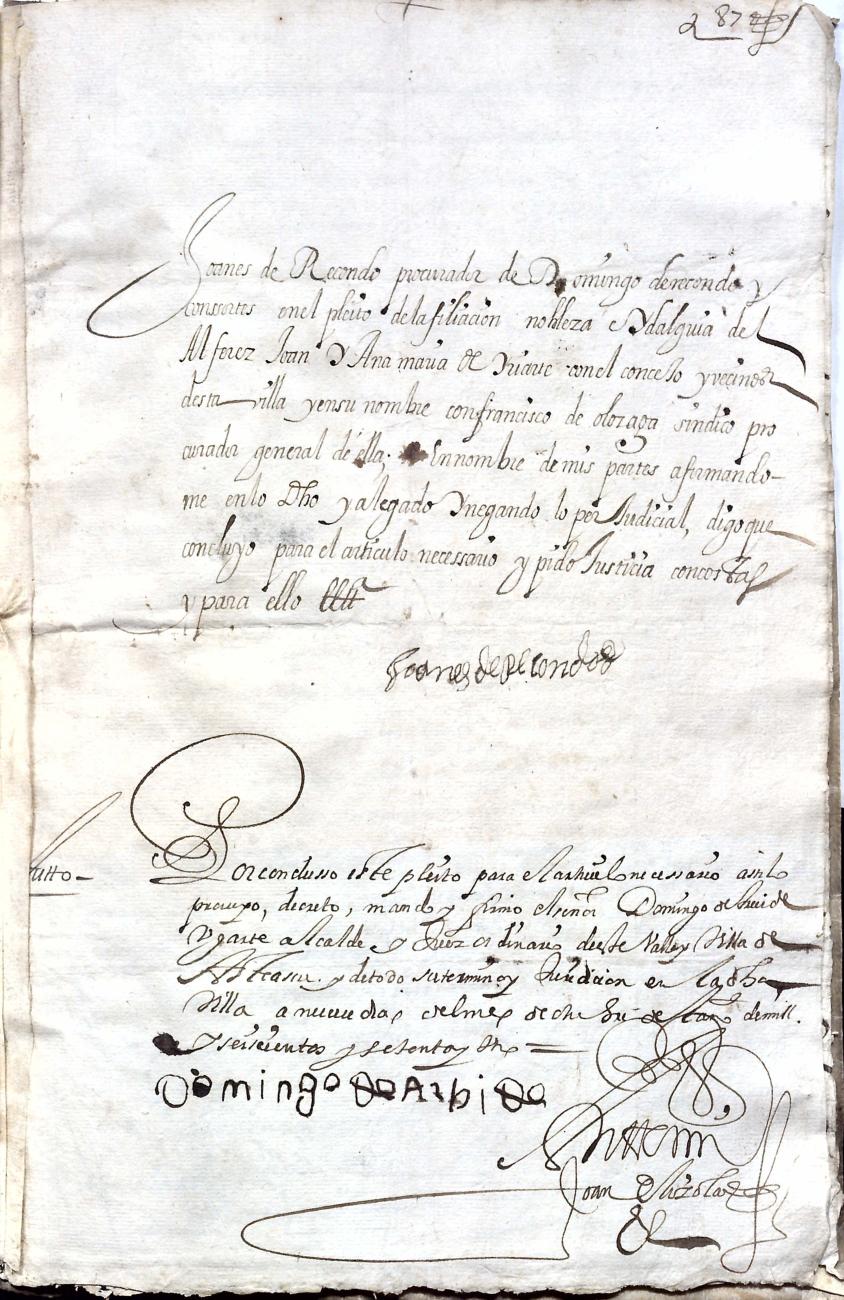 287
Joanes de Recondo procurador de Domingo de recondo y
conssortes en el pleito de la filiacion nobleza e Ydalguia del
Alferez Joan y Ana maria de Yriarte con el concejo y vecinos
desta villa y en su nombre con francisco de olozaga sindico pro
curador general de ella; En nombre de mis partes afirmando-
me en lo Dho y alegado y negando lo perJudicial, digo que
concluyo para el articulo necessario y pido Justicia con costas
y para ello
Joanes de Recondo
Autto-
Por conclusso este pleito para el articulo necessario assi lo
proveyo, decreto, mando y firmo el señor Domingo de
Ygarte alcalde y Juez ordinario deste Valle y Villa de
y de todo su termino y Jurisdicion en la dha
Villa a nueve dias del mes de de mill
y seiscientos y setenta y
Domingo de Arbide
Ante mi
Joan